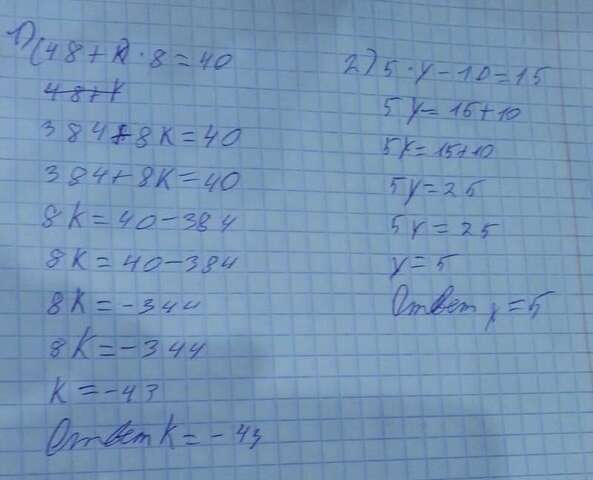 1) (48 + k) · 8 = 40
48+k
384 + 8k = 40
384 + 8k = 40
8k = 40 - 384
8k = 40 - 384
8k = -344
8k = -344
k = -43
Ответ k = -43
2) 5 · y - 10 = 15
5y = 15 + 10
5y = 15 + 10
5y = 25
5y = 25
y = 5
Ответ y = 5